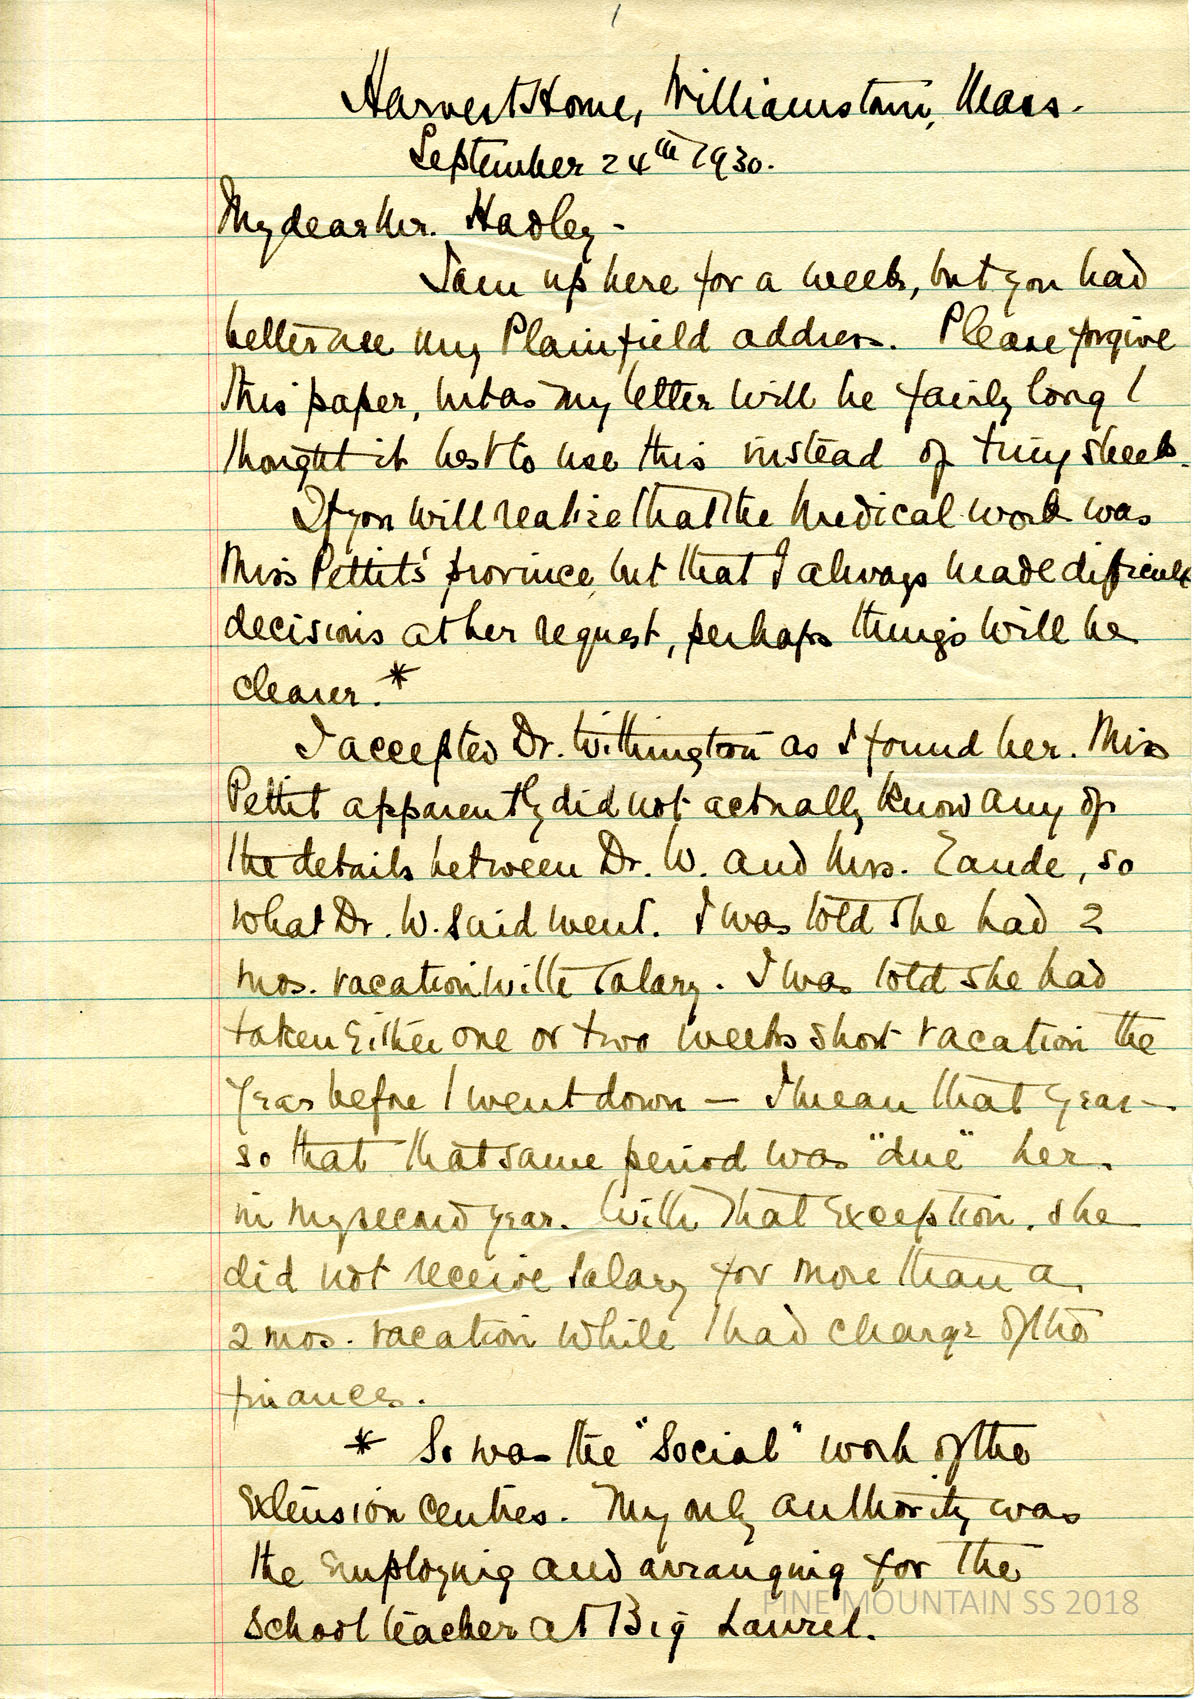 1
Harvest Home, Williamstown, Mass.
September 24th 1930.
My dear Mr. Hadley -
I am up here for a week, but you had
better use my Plainfield address. Please forgive
this paper, but as my letter will be fairly long I
thought it best to use this instead of tiny sheets.
If you will realize that the medical work was
Miss Pettit's province, but that I always made difficult
decisions at her request, perhaps things will be
clearer.*
I accepted Dr. Withington as I found her. Miss
Pettit apparently did not actually know any of
the details between Dr. W. and Mrs. Zande, so
what Dr. W. said went. I was told she had 2
mos. vacation with salary. I was told she had
taken either one or two weeks short vacation the
year before I went down — I mean that year —
so that that same period was "due" her
in my second year. With that exception, she
did not receive salary for more than a
2 mos. vacation while I had charge of the
finances.
* So was the "social" work of the
extension centres. My only authority was
the employing and arranging for the
school teacher at Big Laurel.
PINE MOUNTAIN SS 2018